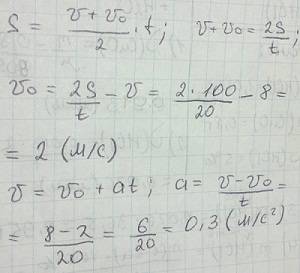 S = (v + v₀)/2 · t; v + v₀ = 2S/t;
v₀ = 2S/t − v = (2 · 100)/20 − 8 =
= 2 (м/с)
v = v₀ + at; a = (v − v₀)/t =
= (8 − 2)/20 = 6/20 = 0,3 (м/с²)